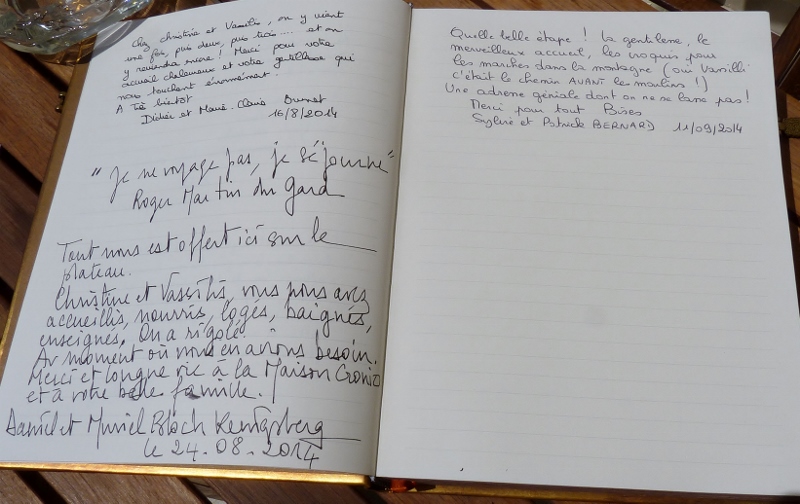 Chez Christine et Vassilis, on y vient
une fois, puis deux, puis trois .... et on
y reviendra encore ! Merci pour votre
accueil chaleureux et votre gentillesse qui
nous touchent énormément.
A Très bientôt
Didier et Marie-Claire
16/8/2014
"Je ne voyage pas, je séjourne"
Roger Martin du Gard
Tout nous est offert ici sur le
plateau.
Christine et Vassilis, vous nous avez
accueillis, nourris, logés, baignés,
enseignés, On a rigolé.
Au moment où nous en avions besoin.
Merci et longue vie à la Maison
et à votre belle famille.
Daniel et Muriel Bloch
le 24.08.2014
Quelle belle étape ! La gentillesse, le
merveilleux accueil, les croquis pour
les marches dans la montagne (oui Vassili
c'était le chemin AVANT les moulins !)
Une adresse géniale dont on ne se lasse pas !
Merci pour tout Bises
Sylvie et Patrick BERNARD 11/09/2014